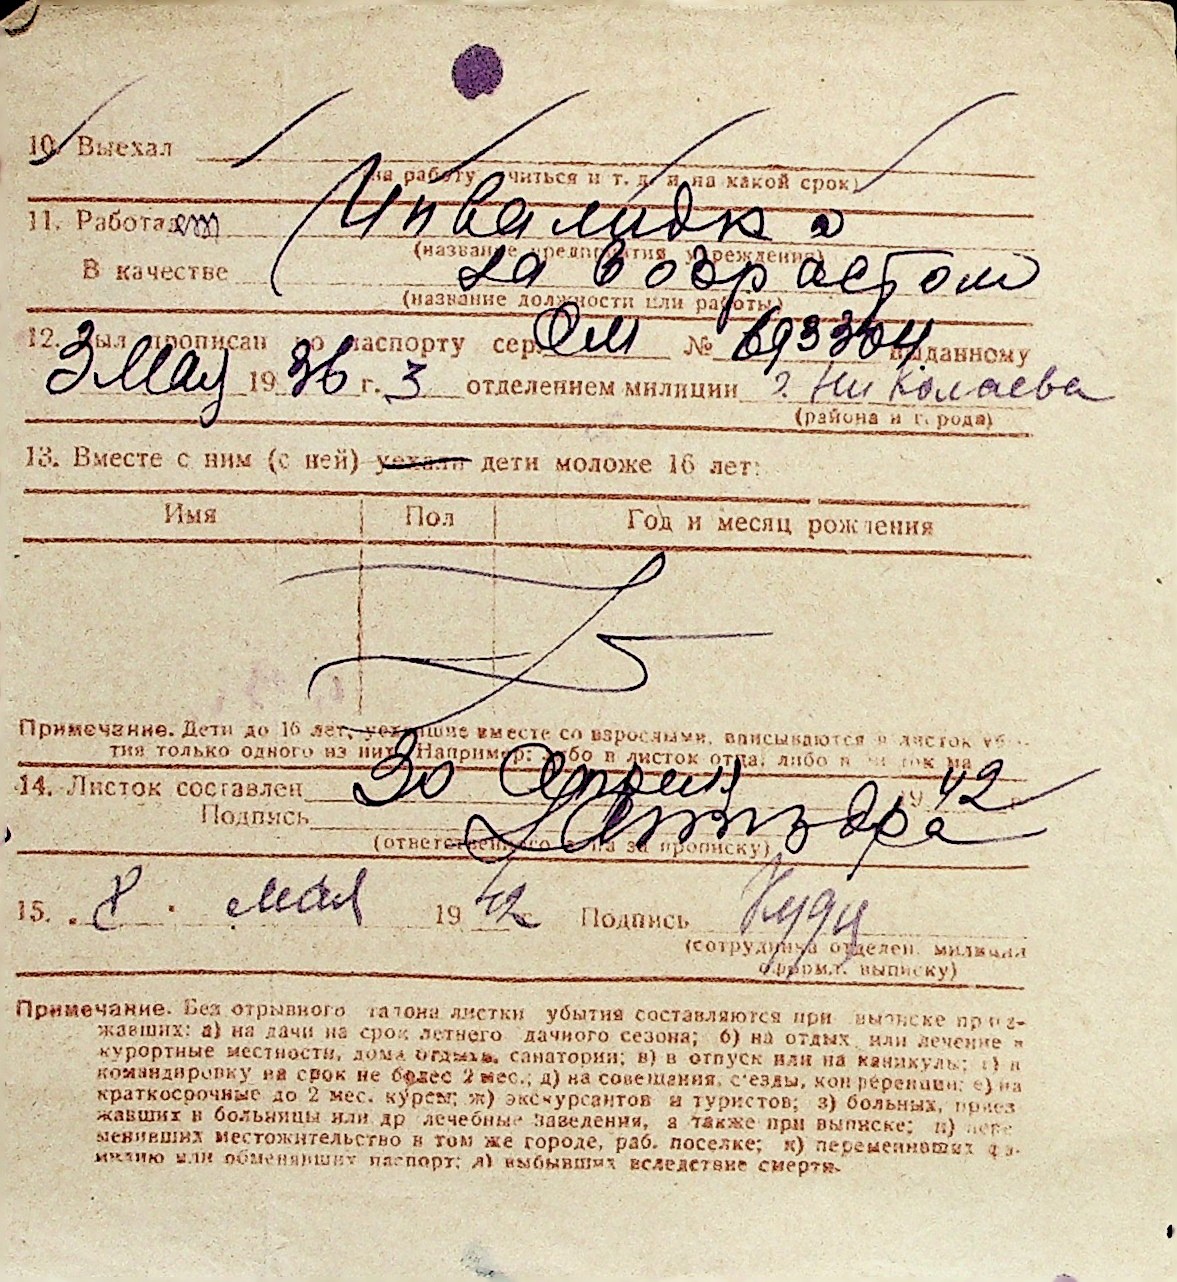 10. Выехал
(на работу учиться и т. д. и на какой срок)
11. Работает Инвалидка
(название предприятия учреждения)
В качестве за возрастом
(название должности или работы)
12. Был прописан по паспорту сер. ОМ № 693304 выданному
3 Мая 1936 г. 3 отделением милиции г. Николаева
(района и города)
13. Вместе с ним (с ней) уехали дети моложе 16 лет:
Имя Пол Год и месяц рождения
Примечание. Дети до 16 лет, уехавшие вместе со взрослыми, вписываются в листок убы-
тия только одного из них. Например: либо в листок отца, либо в листок ма
14. Листок составлен 30 Апреля 1942
Подпись
(ответственного лица за прописку)
15. 8 мая 1942 г. Подпись
(сотрудника отделен. милиции
оформл. выписку)
Примечание. Без отрывного талона листки убытия составляются при выписке приез-
жавших: а) на дачи на срок летнего дачного сезона; б) на отдых или лечение в
курортные местности, дома отдыха, санатории; в) в отпуск или на каникулы; г) в
командировку на срок не более 2 мес.; д) на совещания, с'езды, конференции; е) на
краткосрочные до 2 мес. курсы; ж) экскурсантов и туристов; з) больных, приез
жавших в больницы или др лечебные заведения, а также при выписке; и) пере
менивших местожительство в том же городе, раб. поселке; к) переменивших фа-
милию или обменявших паспорт; л) выбывших вследствие смерти.